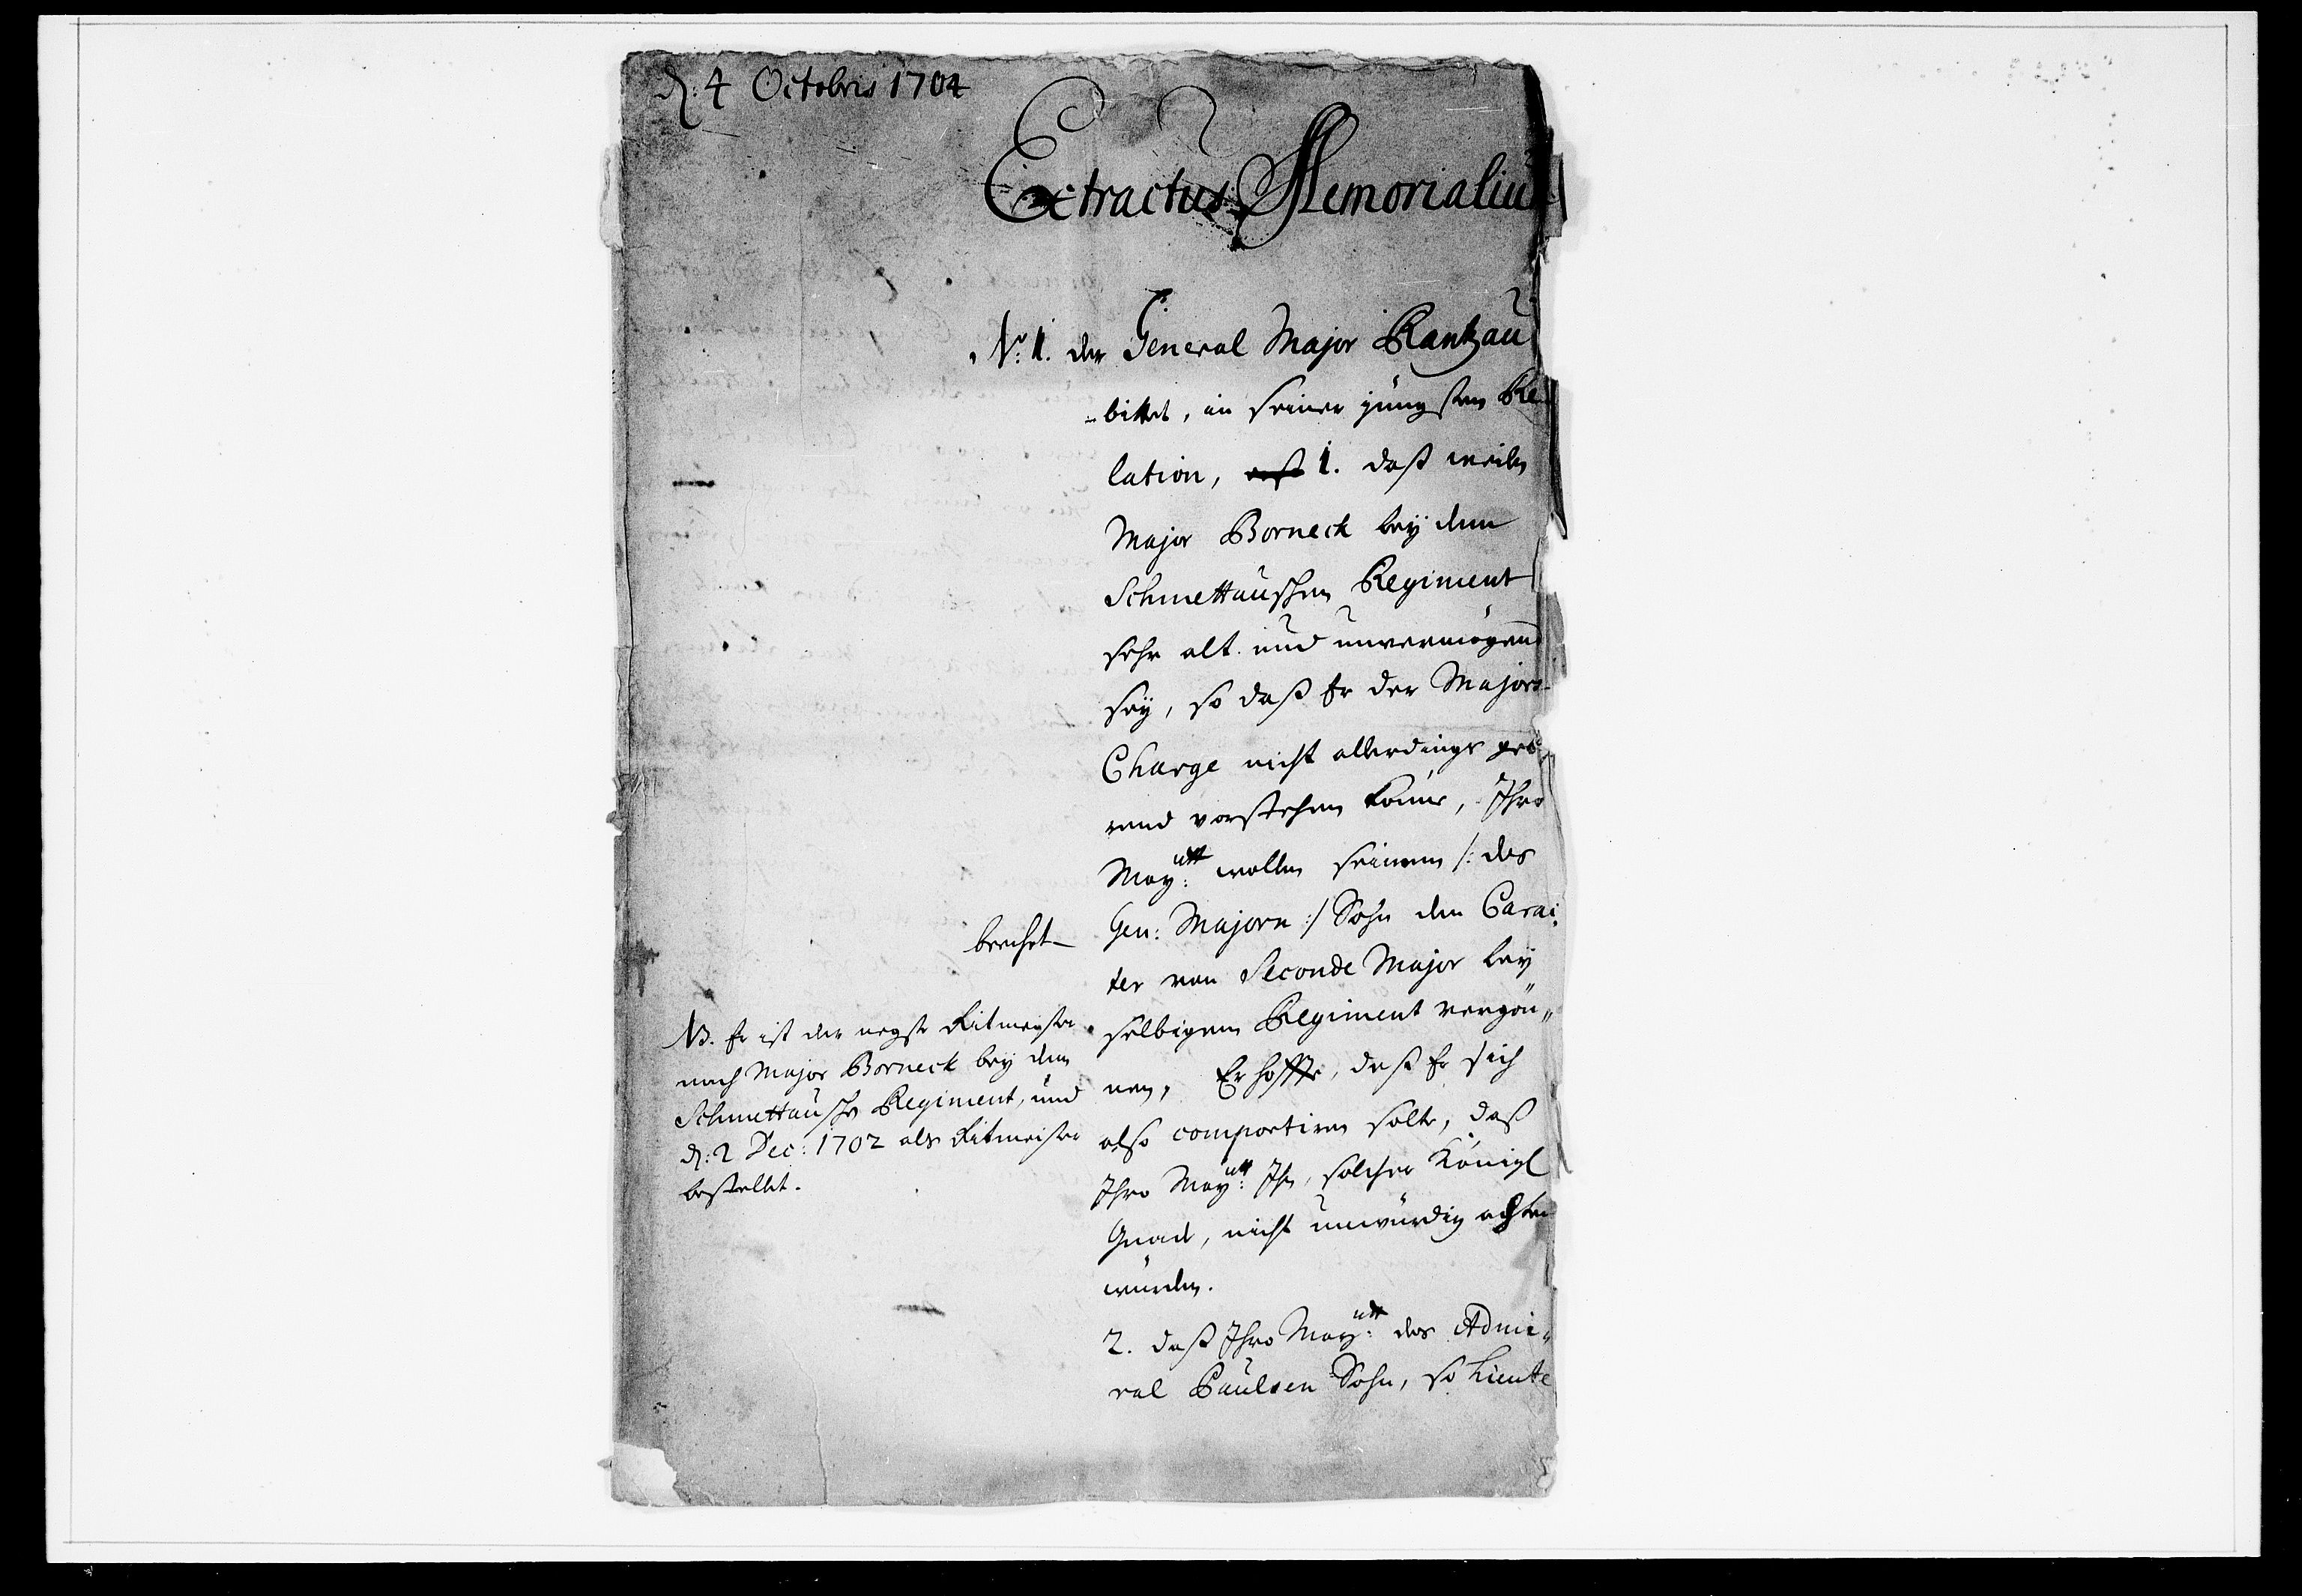 d: 4 Octobris 1704
Extractus Memorialiu
No: 1. der General Major Rantzau
bittet, in seiner jüngsten Re
lation, 1. daß weilen
Major Borneck bey dem
Schmettauschen Regiment
sehr alt und unvermögend
sey, so daß Er der Majors-
Charge nicht allerdings
vorstehen könne, Ihro
Mayttt: wollen seinem /: des
Gen: Majorn :/ Sohn den Carac
ter von Seconde Major bey
selbigem Regiment vergön„
nen, Er hoffte, daß Er sich
also comportiren solte, daß
Ihro Maytt: Ihn, solcher Königl
Gnade, nicht unwürdig achten
würden.
2. daß Ihro Maytt: des Admi„
ral Paulsen Sohn, so Lieute
beruhet
NB. Er ist der negste Ritmeister
nach Major Borneck bey dem
Schmettausche Regiment, und
d: 2 Dec: 1702 als Ritmeister
bestellet.